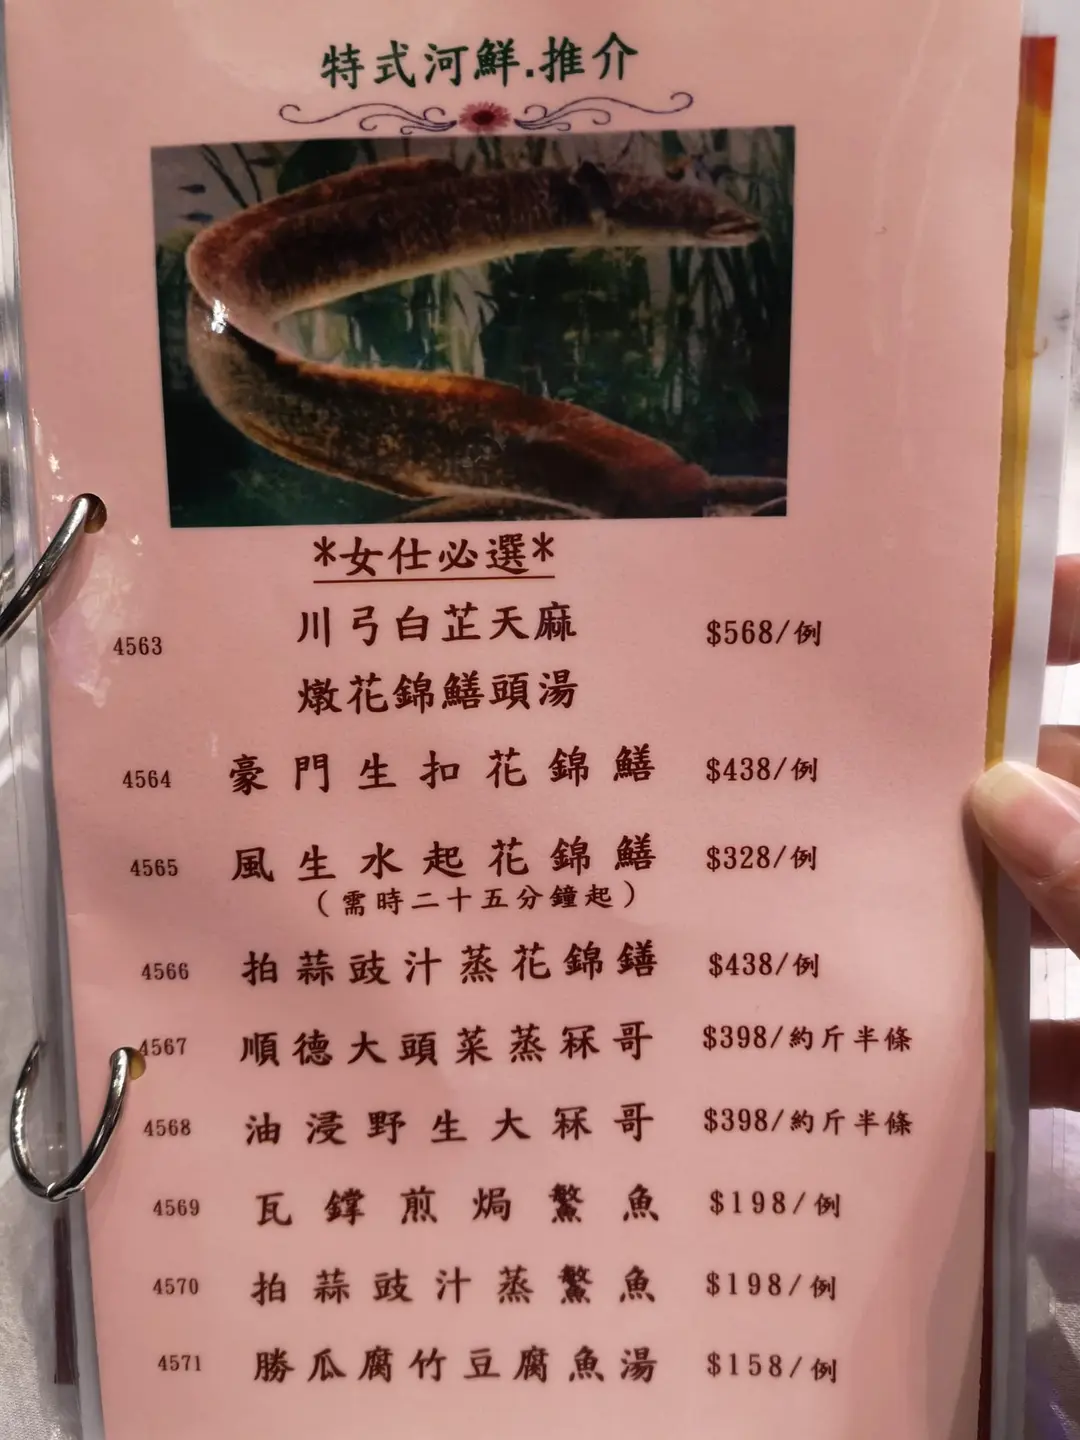 特式河鮮.推介
*女仕必選*
4563 川弓白芷天麻 $568/例
燉花錦鱔頭湯
4564 豪門生扣花錦鱔 $438/例
4565 風生水起花錦鱔 $328/例
(需時二十五分鐘起)
4566 拍蒜豉汁蒸花錦鐥 $438/例
4567 順德大頭菜蒸冧哥 $398/約斤半條
4568 油浸野生大冧哥 $398/約斤半條
4569 瓦鐣煎焗鱉魚 $198/例
4570 拍蒜豉汁蒸鱉魚 $198/例
4571 勝瓜腐竹豆腐魚湯 $158/例